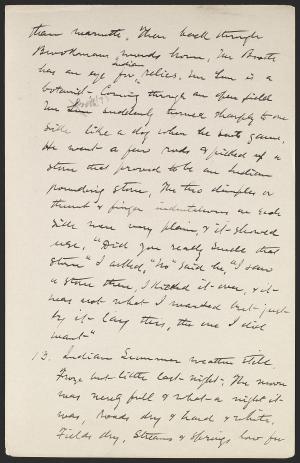 than warmth. Then back through
Brookmans woods home. Mr Booth
has an eye for Indian relics. Mr Lown is a
botanist. Coming through an open field
Mr Booth suddenly turned sharply to one
side like a dog when he scents game.
He went a few rods & picked up a
stone that proved to be an Indian
pounding stone, The two dimples or
thumb & finger indentations on each
side were very plain, & it showed
use. "Did you really smell that
stone" I asked, "No" said he, "I saw
a stone there, I kicked it over, & it
was not what I wanted but just
by it lay this, the one I did
want."
13. Indian Summer weather still.
Froze but little last night. The moon
was nearly full & what a night it
was, roads dry & hard & white,
Fields dry, Streams & springs low for